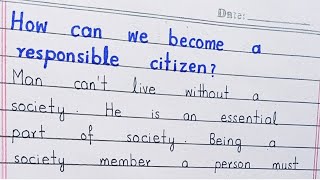 Date:
How can we become a
responsible citizen?
Man can't live without a
society. He is an essential
part of society. Being a
society member a person must